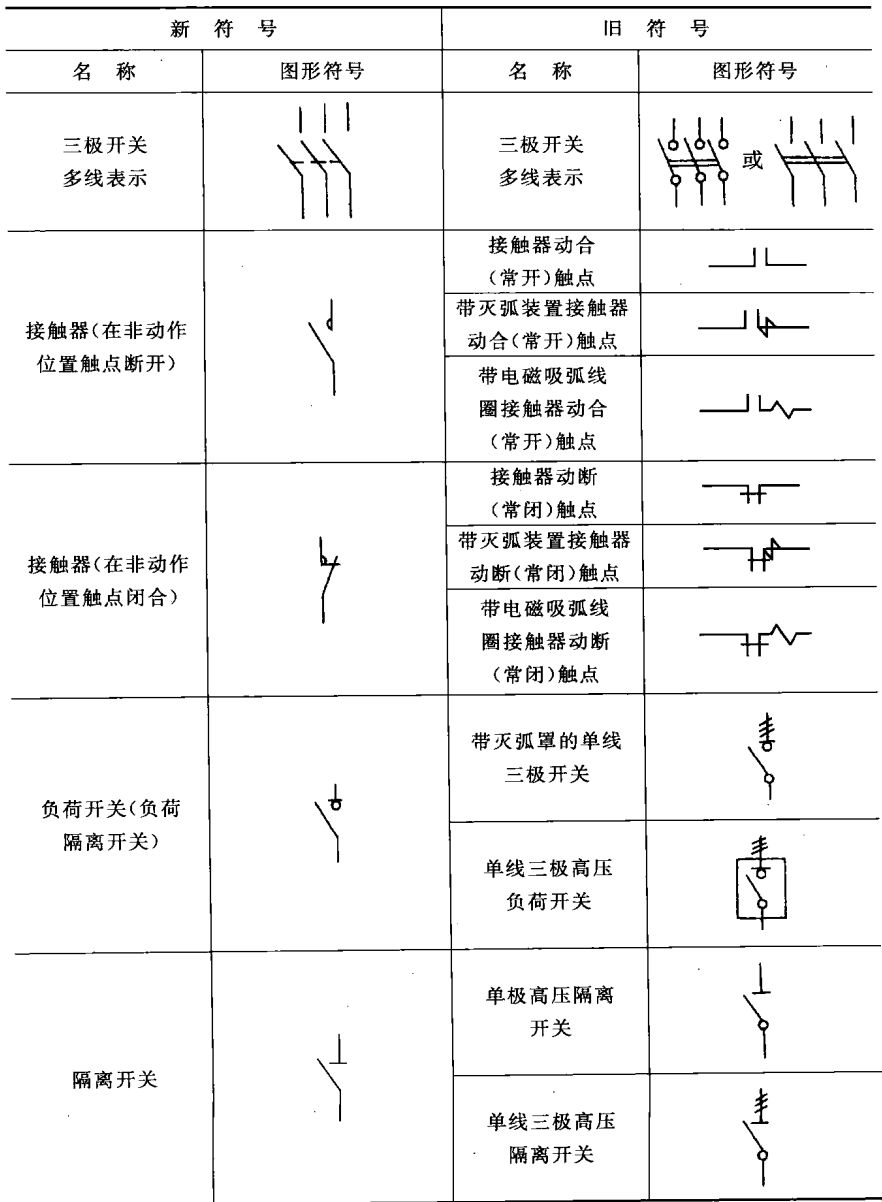 新 符 号
旧 符 号
名 称
图形符号
名 称
图形符号
三极开关
多线表示
三极开关
多线表示
或
接触器(在非动作
位置触点断开)
接触器动合
(常开)触点
带灭弧装置接触器
动合(常开)触点
带电磁吸弧线
圈接触器动合
(常开)触点
接触器(在非动作
位置触点闭合)
接触器动断
(常闭)触点
带灭弧装置接触器
动断(常闭)触点
带电磁吸弧线
圈接触器动断
(常闭)触点
负荷开关(负荷
隔离开关)
带灭弧罩的单线
三极开关
单线三极高压
负荷开关
隔离开关
单极高压隔离
开关
单线三极高压
隔离开关